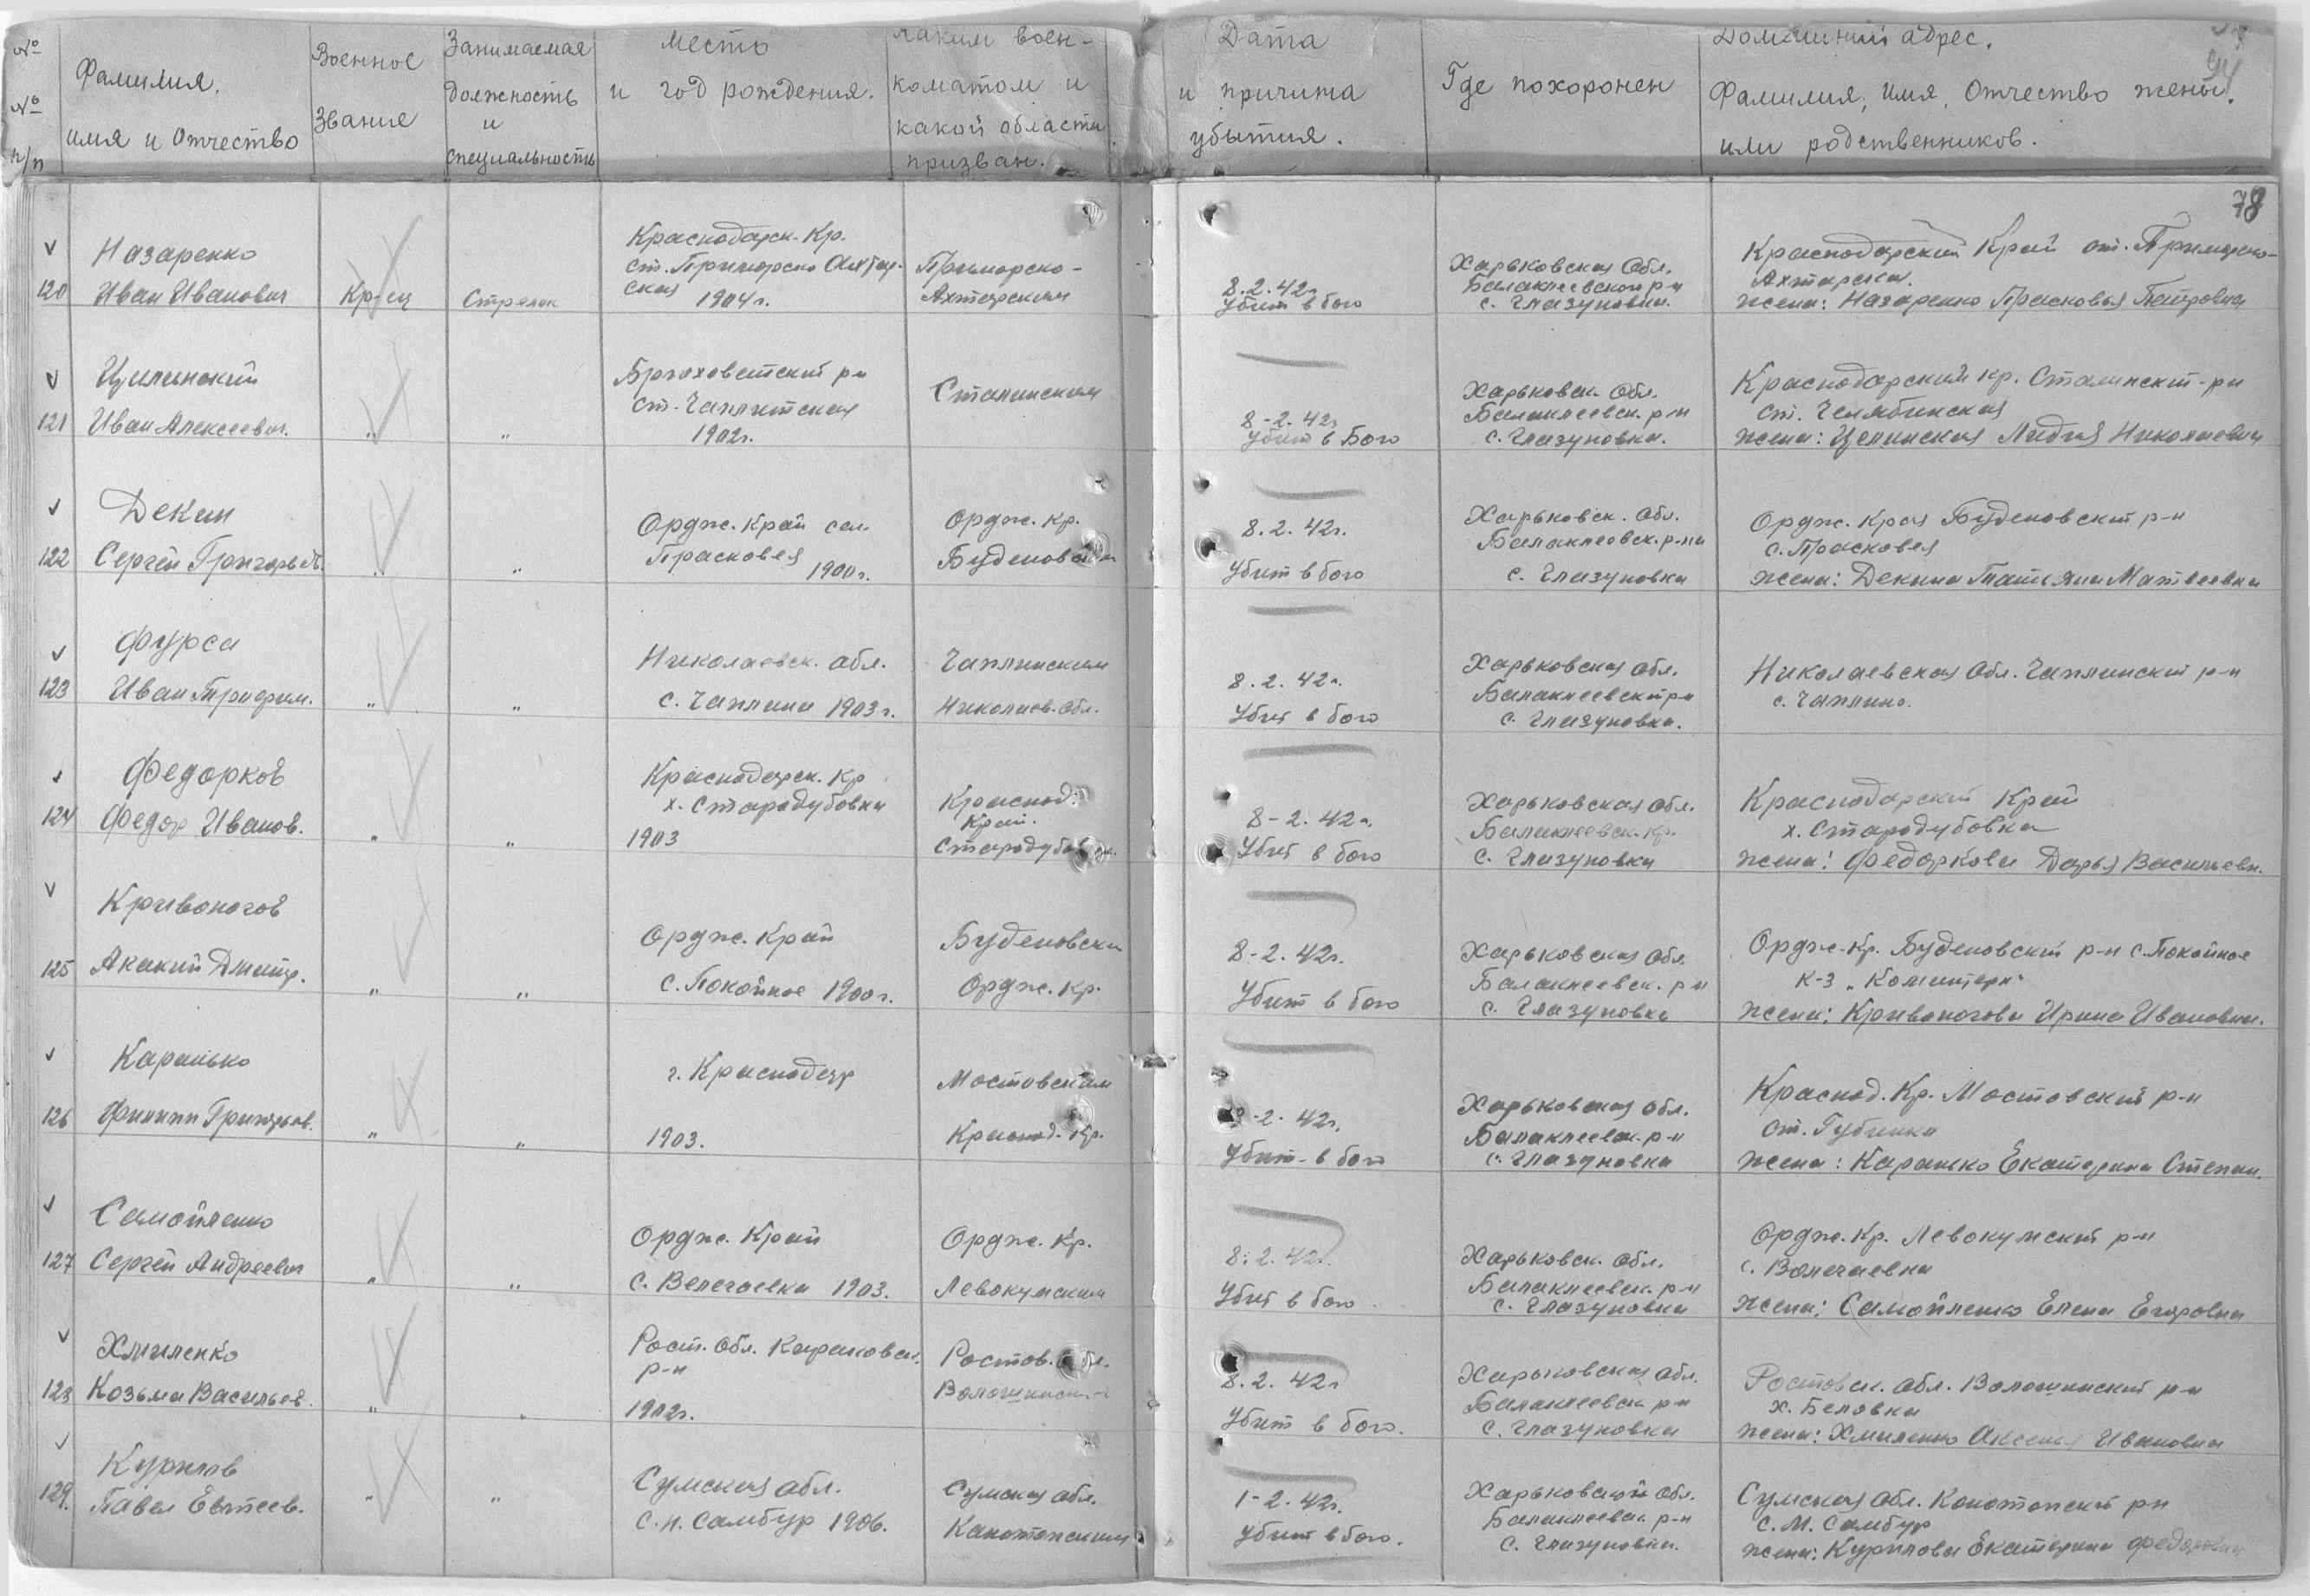 № № п/п
Фамилия, имя и Отчество
Военное Звание
Занимаемая должность и специальность
Место и год рождения.
каким воен-коматом и какой области призван.
Дата и причина убытия.
Где похоронен
Домашний адрес.
Фамилия, Имя, Отчество жены,
или родственников.
78
120
Назаренко
Иван Иванович
Кр-ец
Стрелок
Краснодарск. Кр.
ст. Приморско Ахтар-
ская
1904 г.
Приморско-
Ахтарским
8.2.42г
Убит в бою
Харьковская Обл.
Балаклеевской р-н
с. Глазуновка.
Краснодарский Край ст. Приморско-
Ахтарская.
жена: Назаренко Прасковья Петровна
121
Цилинский
Иван Алексеевич.
"
"
Брюховетский р-н
ст. Чаплитская
1902г.
Сталинским
8-2.42г
Убит в Бою
Харьковск. Обл.
Балаклеевск. р-н
с. Глазуновка.
Краснодарский кр. Сталинский р-н
ст. Челябинская
жена: Целинская Лидия Николаевна
122
Декин
Сергей Григорьев.
"
"
Ордж. Край сел.
Прасковея
1900г.
Ордж. Кр.
Буденовским
8.2.42г.
Убит в бою
Харьковск. Обл.
Балаклеевск. р-на
с. Глазуновка
Ордж. Края Буденовский р-н
с. Прасковея
жена: Декина Татьяна Матвеевна
123
Фурса
Иван Трифим.
"
"
Николаевск. обл.
с. Чаплина 1903г.
Чаплинским
Николаев. Обл.
8.2.42г.
Убит в бою
Харьковская обл.
Балаклеевский р-н
с. Глазуновка.
Николаевская Обл. Чаплинский р-н
с. Чаплино.
124
Федорков
Федор Иванов.
"
"
Краснодарск. Кр
х. Стародубовка
1903
Краснод.
Край.
8-2.42г.
Убит в бою
Харьковская обл.
Балаклеевск. кр.
с. Глазуновка
Краснодарский Край
х. Стародубовка
жена: Федоркова Дарья Васильевн.
125
Кривоногов
Акакий Дмитр.
"
"
Ордж. Край
с. Покойное 1900г.
Буденовски
Ордж. Кр.
8-2.42г.
Убит в бою
Харьковская обл.
Балаклеевск. р-н
с. Глазуновка
Ордж. Кр. Буденовский р-н с. Покойное
к-з „Коминтерн"
жена: Кривоногова Ирина Ивановна.
126
Каранько
Филипп Григорьев.
"
"
г. Краснодар
1903.
Мостовским
Краснод. Кр.
8-2.42г.
Убит в бою
Харьковская обл.
Балаклеевск. р-н
с. Глазуновка
Краснод. Кр. Мостовский р-н
ст. Губинка
жена: Каранько Екатерина Степан.
127
Самойленко
Сергей Андреевич
"
"
Ордж. Край
с. Велегаевка 1903.
Ордж. Кр.
Левокумским
8.2.42г.
Убит в бою
Харьковск. обл.
Балаклеевск. р-н
с. Глазуновка
Ордж. Кр. Левокумский р-н
с. Волегаевка
жена: Самойленко Елена Егоровна
128
Хмиленко
Козьма Васильев.
"
"
Рост. Обл.
р-н
1902г.
Ростов. обл.
8.2.42г
Убит в бою.
Харьковская обл.
Балаклеевск р-н
с. Глазуновка
Ростовск. обл. Волошинский р-н
х. Беловка
жена: Хмиленко Аксенья Ивановна
129.
Курилов
Павел Евтеев.
"
"
Сумская обл.
с. н. Самбур 1906.
Сумская обл.
Конотопским
1-2.42г.
Убит в бою.
Харьковской обл.
Балаклеевск. р-н
с. Глазуновка.
Сумская обл. Конотопский р-н
с. М. Самбур
жена: Курилова Екатерина Федоровна